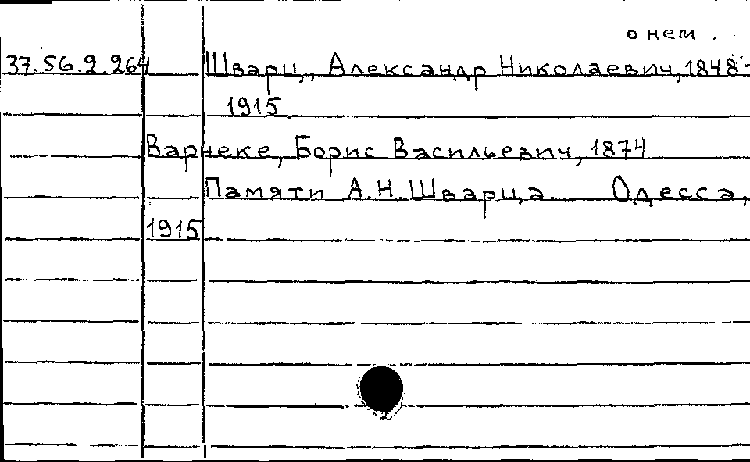 о нем.
37.56.2.264 Шварц, Александр Николаевич, 1848-
1915
Варнеке, Борис Васильевич, 1874
Памяти А.Н. Шварца Одесса,
1915